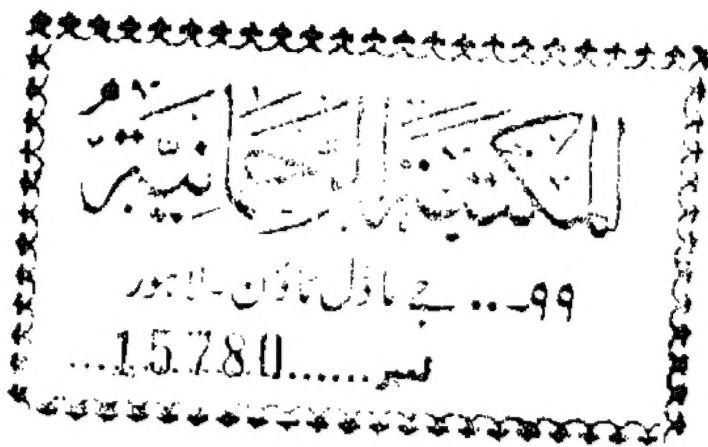 المکتبة الرحمانیة
۹۹ــ.. جے ماڈل ٹاؤن ــ لاہور
نمبر......15780...